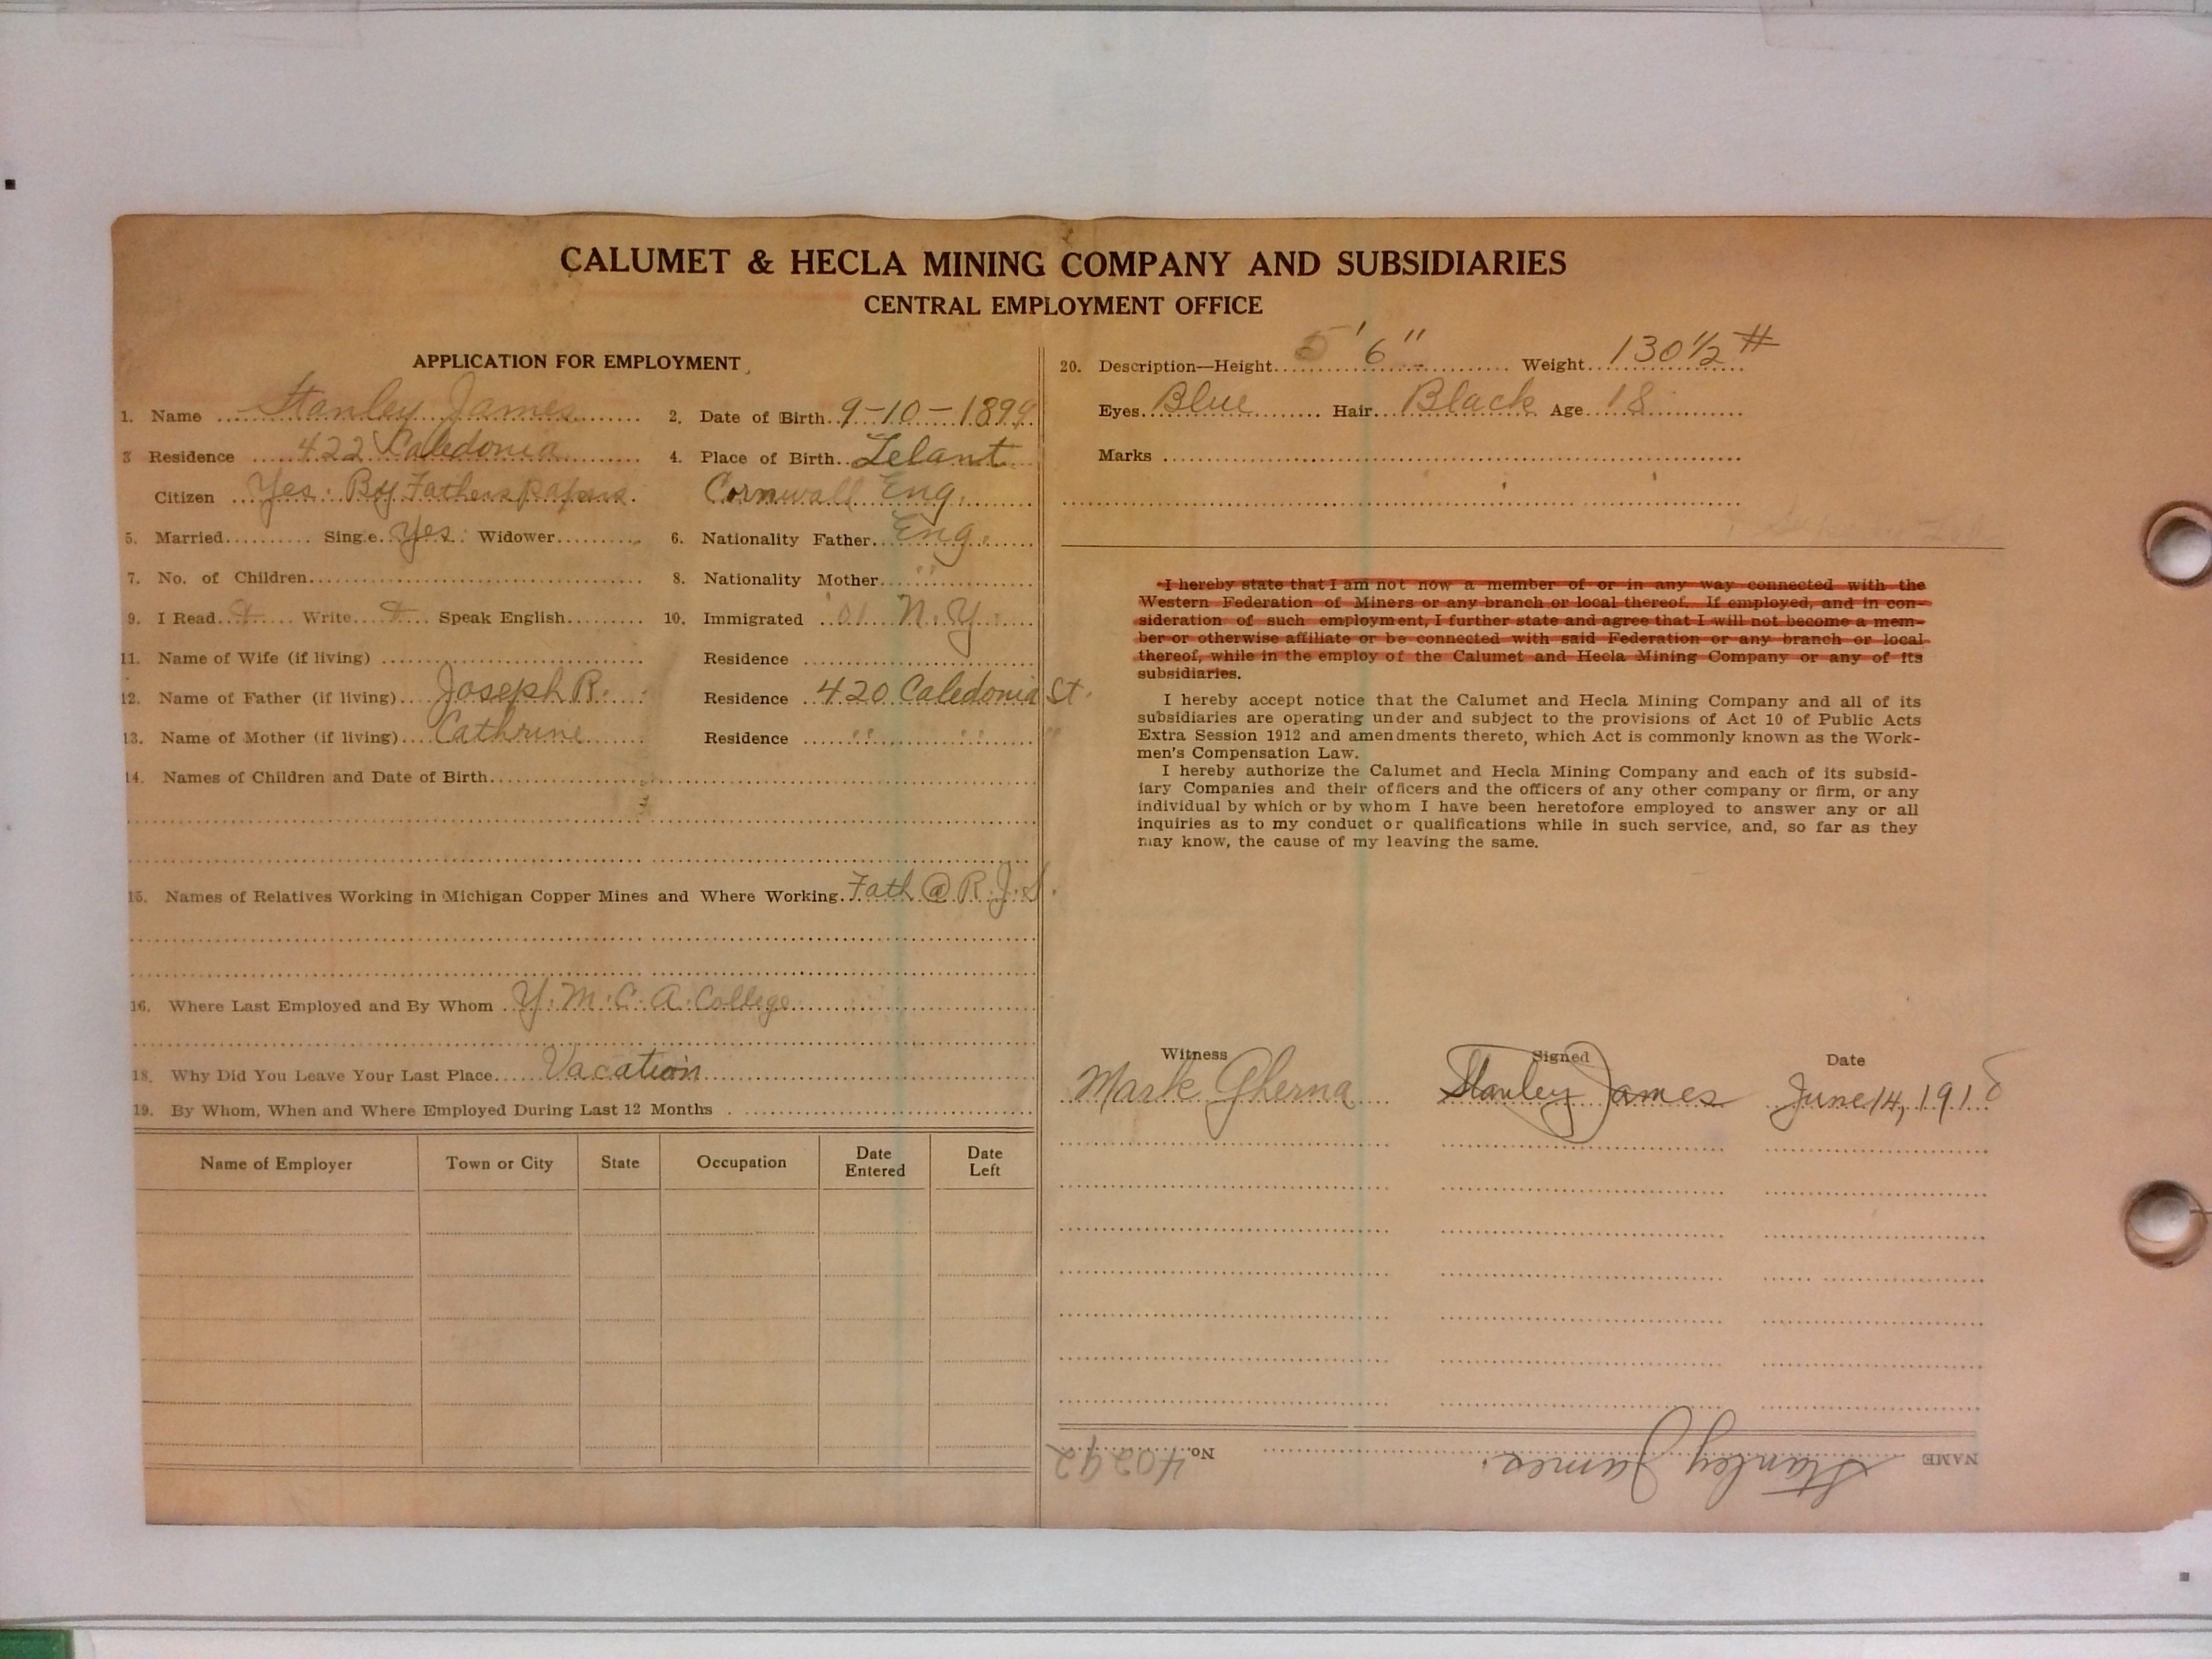 CALUMET & HECLA MINING COMPANY AND SUBSIDIARIES
CENTRAL EMPLOYMENT OFFICE
APPLICATION FOR EMPLOYMENT
1. Name Stanley James 2. Date of Birth 9-10-1899
3 Residence 422 Caledonia 4. Place of Birth Lelant
Citizen Yes. By Fathers papers. Cornwall Eng.
5. Married Single Yes. Widower 6. Nationality Father Eng.
7. No. of Children 8. Nationality Mother "
9. I Read Write Speak English 10. Immigrated '01 N.Y.
11. Name of Wife (if living) Residence
12. Name of Father (if living) Joseph R. Residence 420 Caledonia St.
13. Name of Mother (if living) Cathrine Residence " " "
14. Names of Children and Date of Birth
15. Names of Relatives Working in Michigan Copper Mines and Where Working Fath @ R.J.S.
16. Where Last Employed and By Whom Y.M.C.A. College
18. Why Did You Leave Your Last Place Vacation
19. By Whom, When and Where Employed During Last 12 Months
Name of Employer Town or City State Occupation Date Entered Date Left
20. Description—Height 5' 6" Weight 130 1/2 #
Eyes Blue Hair Black Age 18
Marks
I hereby state that I am not now a member of or in any way connected with the
Western Federation of Miners or any branch or local thereof. If employed, and in con-
sideration of such employment, I further state and agree that I will not become a mem-
ber or otherwise affiliate or be connected with said Federation or any branch or local
thereof, while in the employ of the Calumet and Hecla Mining Company or any of its
subsidiaries.
I hereby accept notice that the Calumet and Hecla Mining Company and all of its
subsidiaries are operating under and subject to the provisions of Act 10 of Public Acts
Extra Session 1912 and amendments thereto, which Act is commonly known as the Work-
men's Compensation Law.
I hereby authorize the Calumet and Hecla Mining Company and each of its subsid-
iary Companies and their officers and the officers of any other company or firm, or any
individual by which or by whom I have been heretofore employed to answer any or all
inquiries as to my conduct or qualifications while in such service, and, so far as they
may know, the cause of my leaving the same.
Witness Signed Date
Mark Gherna Stanley James June 14, 1918
NAME Stanley James. No. 40292